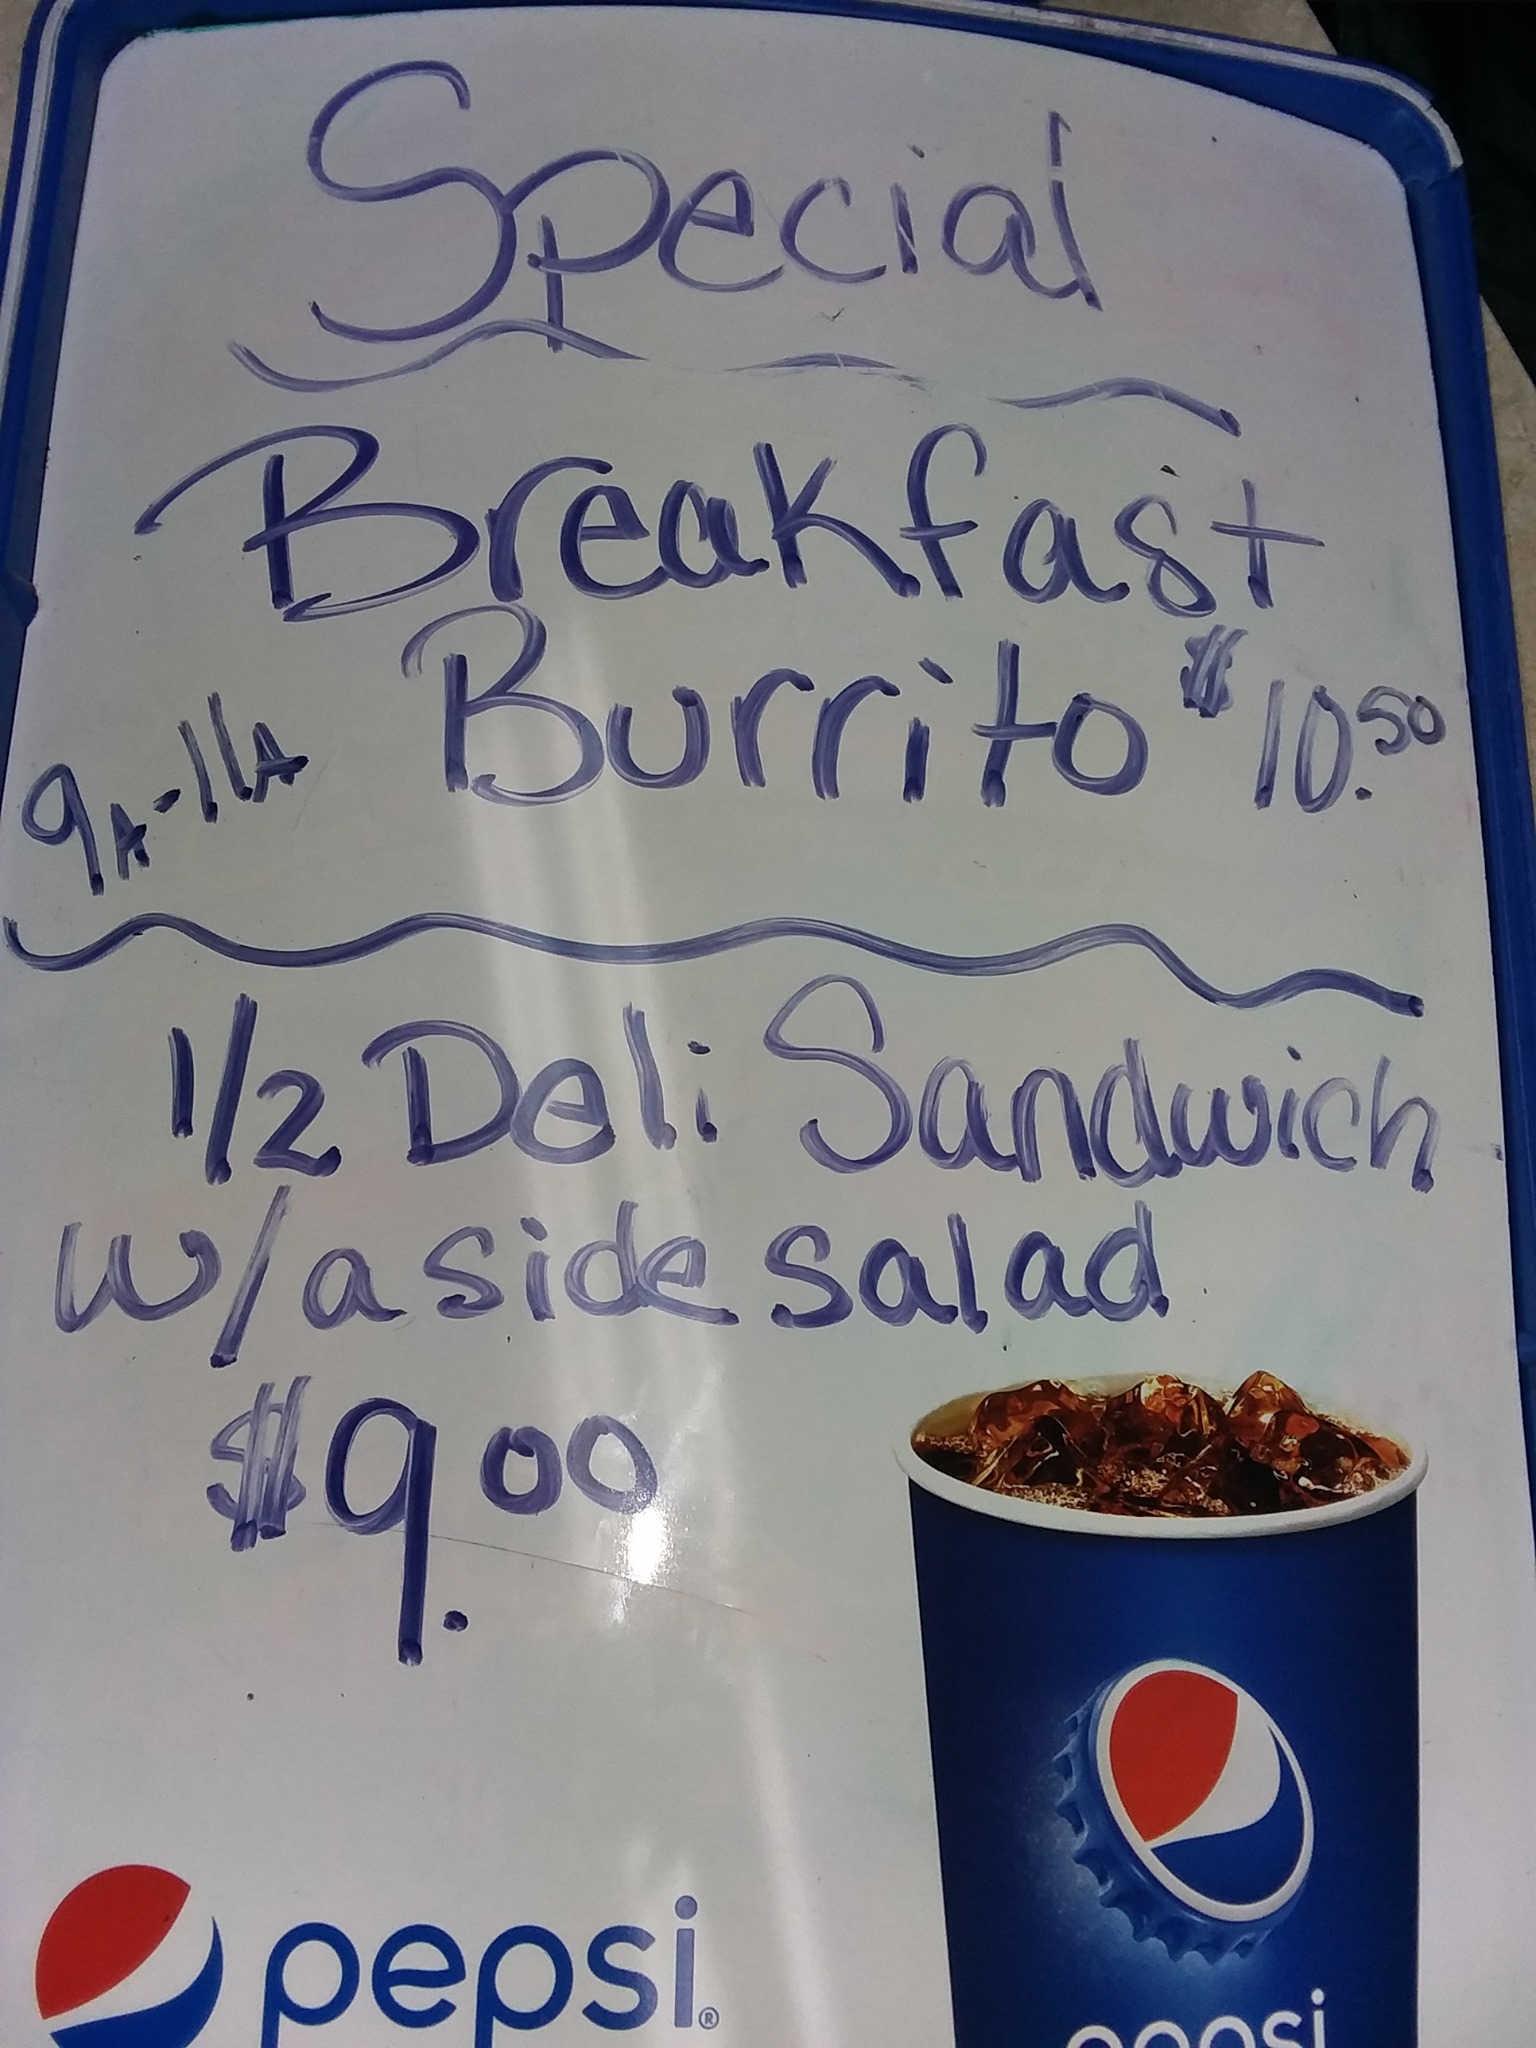 Special
Breakfast
Burrito $10.50
9A-11A
1/2 Deli Sandwich
w/a side salad
$9.00
pepsi®
pepsi